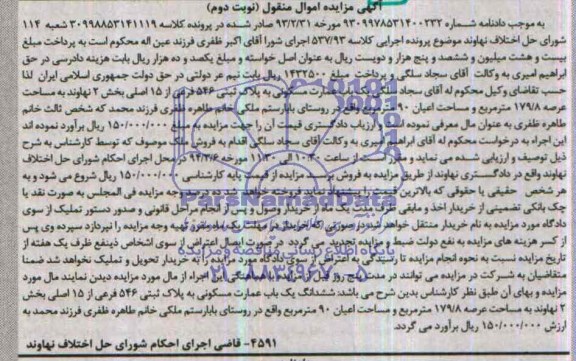 آگهی مزایده اموال منقول (نوبت دوم)
به موجب دادنامه شماره ۹۳۰۹۹۷۸۵۳۱۴۰۰۲۳۲ مورخه ۹۳/۲/۳۱ صادر شده در پرونده کلاسه ۳۰۹۹۸۸۵۳۱۴۱۱۱۹ شعبه ۱۱۴
شورای حل اختلاف نهاوند موضوع پرونده اجرایی کلاسه ۵۳۷/۹۳ اجرای شورا آقای اکبر ظفری فرزند عین اله محکوم است به پرداخت مبلغ
بیست و هشت میلیون و ششصد و پنج هزار و دویست ریال به عنوان اصل خواسته و مبلغ یکصد و ده هزار ریال بابت هزینه دادرسی در حق
ابراهیم امیری به وکالت آقای سجاد سلگی و پرداخت مبلغ ۱۴۳۲۵۰۰ ریال بابت نیم عر دولتی در حق دولت جمهوری اسلامی ایران لذا
حسب تقاضای وکیل محکوم له آقای سجاد سلگی عمارت مسکونی به پلاک ثبتی ۵۴۶ فرعی از ۱۵ اصلی بخش ۲ نهاوند به مساحت
عرصه ۱۷۹/۸ مترمربع و مساحت اعیان ۹۰ مترمربع واقع در روستای بابارستم ملکی خانم طاهره ظفری فرزند محمد که شخص ثالث خانم
طاهره ظفری به عنوان مال معرفی نموده اند و ارزیاب دادگستری قیمت آن را جهت مزایده به مبلغ ۱۵۰/۰۰۰/۰۰۰ ریال برآورد نموده اند
این اجراء به درخواست محکوم له آقای ابراهیم امیری به وکالت آقای سجاد سلگی اقدام به فروش ملک موصوف که توسط کارشناس به شرح
ذیل توصیف و ارزیابی شده می نماید و مقرر است از ساعت ۱۰:۳۰ الی ۱۱:۳۰ مورخه ۹۴/۳/۶ در محل اجرای احکام شورای حل اختلاف
نهاوند واقع در دادگستری نهاوند از طریق مزایده به فروش برسد. مزایده از قیمت پایه کارشناسی ۱۵۰/۰۰۰/۰۰۰ ریال شروع می شود و به
هر شخص حقیقی یا حقوقی که بالاترین قیمت را پیشنهاد نماید فروخته خواهد شد. ده درصد مزایده فی المجلس به صورت نقد یا
چک بانکی تضمینی از خریدار اخذ و مابقی ظرف مدت یک ماه از خریدار وصول و پس از انجام مراحل قانونی و صدور دستور تملیک از سوی
دادگاه مورد مزایده به نام خریدار منتقل خواهد شد. در صورتی که خریدار در مهلت یک ماه بقیه وجه مزایده را نپردازد سپرده وی پس
از کسر هزینه های مزایده به نفع دولت ضبط و مزایده تجدید می گردد در صورت ایصال اعتراض از سوی اشخاص ذینفع ظرف یک هفته از
تاریخ مزایده نسبت به نحوه انجام مزایده تا رسیدگی به اعتراض از سوی دادگاه مورد مزایده به خریدار تحویل و تملیک نخواهد شد ضمنا
متقاضیان به شرکت در مزایده می توانند در مدت پنج روز قبل از مزایده با هماهنگی این اجراء از مال مورد مزایده دیدن نمایند مال مورد
مزایده و بهای آن طبق نظر کارشناس بدین شرح می باشد: ششدانگ یک باب عمارت مسکونی به پلاک ثبتی ۵۴۶ فرعی از ۱۵ اصلی بخش
۲ نهاوند به مساحت عرصه ۱۷۹/۸ مترمربع و مساحت اعیان ۹۰ مترمربع واقع در روستای بابارستم ملکی خانم طاهره ظفری فرزند محمد به
ارزش ۱۵۰/۰۰۰/۰۰۰ ریال برآورد می گردد.
۴۵۹۱- قاضی اجرای احکام شورای حل اختلاف نهاوند
ParsNamadData
پایگاه اطلاع رسانی مناقصه و مزایده
۰۲۱-۸۸۳۴۹۶۷۰-۵